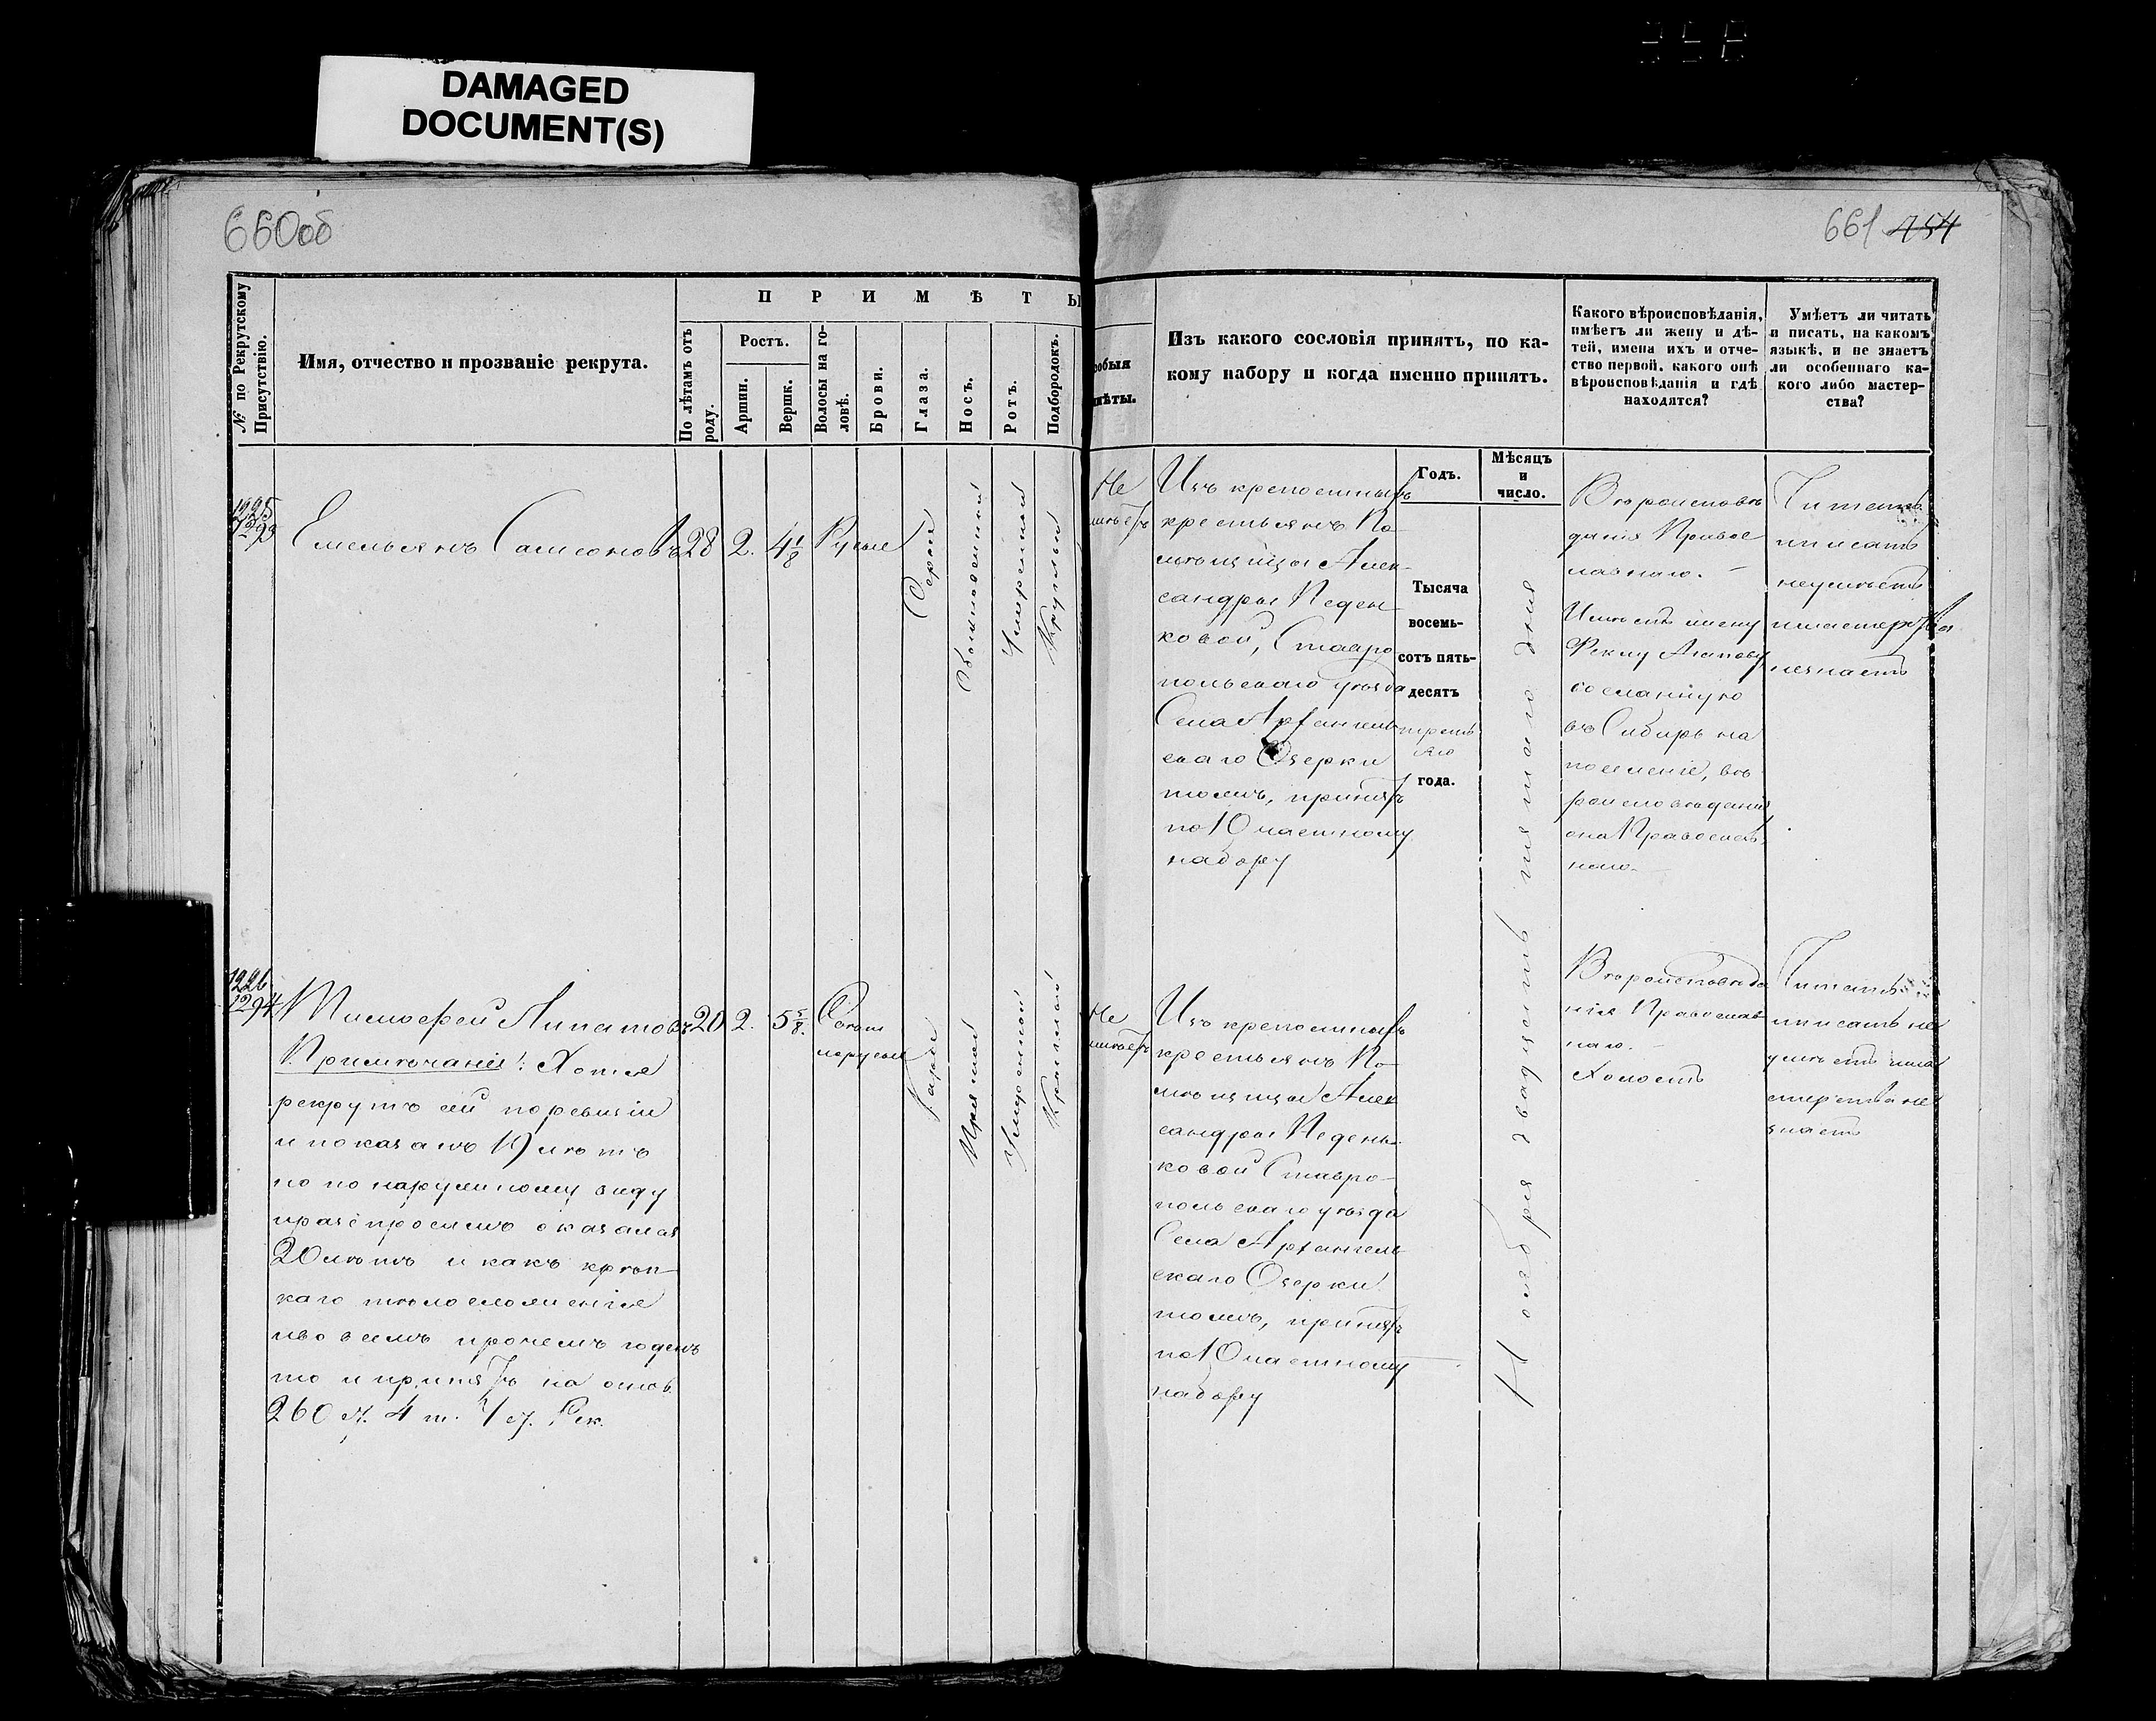 DAMAGED
DOCUMENT(S)
660об
661 754
№ по Рекрутскому
Присутствію.
Имя, отчество и прозваніе рекрута.
ПРИМѢТЫ
По лѣтамъ отъ
роду.
Ростъ.
Аршин.
Вершк.
Волосы на го-
ловѣ.
Брови.
Глаза.
Носъ.
Ротъ.
Подбородокъ.
обыя
мѣты.
Изъ какого сословія принятъ, по ка-
кому набору и когда именно принятъ.
Какого вѣроисповѣданія,
имѣетъ ли жену и дѣ-
тей, имена ихъ и отче-
ство первой, какого онѣ
вѣроисповѣданія и гдѣ
находятся?
Умѣетъ ли читать
и писать, на какомъ
языкѣ, и не знаетъ
ли особеннаго ка-
кого либо мастер-
ства?
Годъ.
Мѣсяцъ
и
число.
1225
1293
Емельянъ Самсоновъ
28
2.
4 1/8
Русые
Серые
Обыкновенный
Умеренной
Круглый
Не
имѣетъ
Изъ крепостныхъ
крестьянъ По-
мѣщицы Алек-
сандры Педен-
ковой, Ставро
польскаго уѣзда
Села Архангель
скаго Озерки
томъ, принятъ
по 10 частному
набору
Тысяча
восемь-
сотъ пять-
десятъ
треть
яго
года.
Ноября двадцать пятаго дня
Вѣроисповѣ
данія Правос
лавнаго.
Имѣетъ жену
Феклу Агапову
сосланную
въ Сибирь на
поселеніе, вѣ
роисповѣданія
она Православ
наго.
Читать
и писать
неумѣетъ
и мастерства
незнаетъ
1226
1294
Тимофей Липатовъ
20
2.
5 5/8.
Светло
русые
Карые
Прямой
Умеренной
Круглый
Не
имѣетъ
Примѣчаніе: Хотя
рекрутъ сей по ревизіи
и показанъ 19 лѣтъ
но по наружному виду
и разспросамъ оказался
20 лѣтъ и какъ крѣп-
каго тѣлосложенія
и во всемъ прочемъ годенъ
то и принятъ на основ.
260 ст. 4 т. Уст. Рек.
Изъ крепостныхъ
крестьянъ По-
мѣщицы Алек
сандры Педень-
ковой Ставро-
польскаго уѣзда
Села Архангель
скаго Озерки
томъ, принятъ
по 10 частному
набору
Вѣроисповѣда
нія Православ
наго.
Холостъ
Читать
и писать не
умѣетъ и ма
стерства не
знаетъ